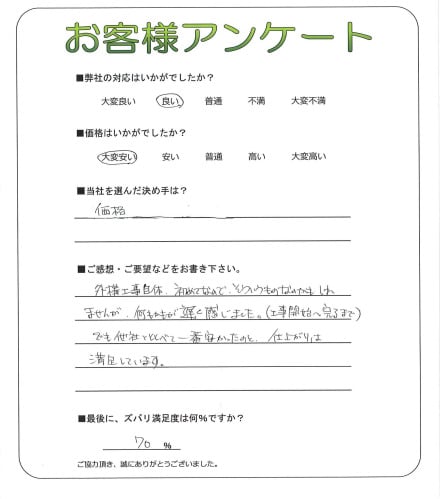 お客様アンケート
■弊社の対応はいかがでしたか？
大変良い 良い 普通 不満 大変不満
■価格はいかがでしたか？
大変安い 安い 普通 高い 大変高い
■当社を選んだ決め手は？
価格
■ご感想・ご要望などをお書き下さい。
外構工事自体、初めてなので、そういうものなのかもしれ
ませんが、何もかもが遅く感じました。(工事開始〜完了まで)
でも他社とくらべて一番安かったのと、仕上がりは
満足しています。
■最後に、ズバリ満足度は何％ですか？
70 %
ご協力頂き、誠にありがとうございました。